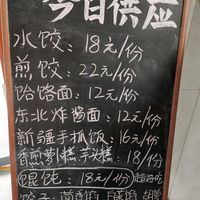 今日供应
水饺：18元/份
煎饺：22元/份
饸饹面：12元/份
东北炸酱面：12元/份
新疆手抓饭：16元/份
香煎萝卜糕 芋头糕：18/份
馄饨：18元/份 超好吃